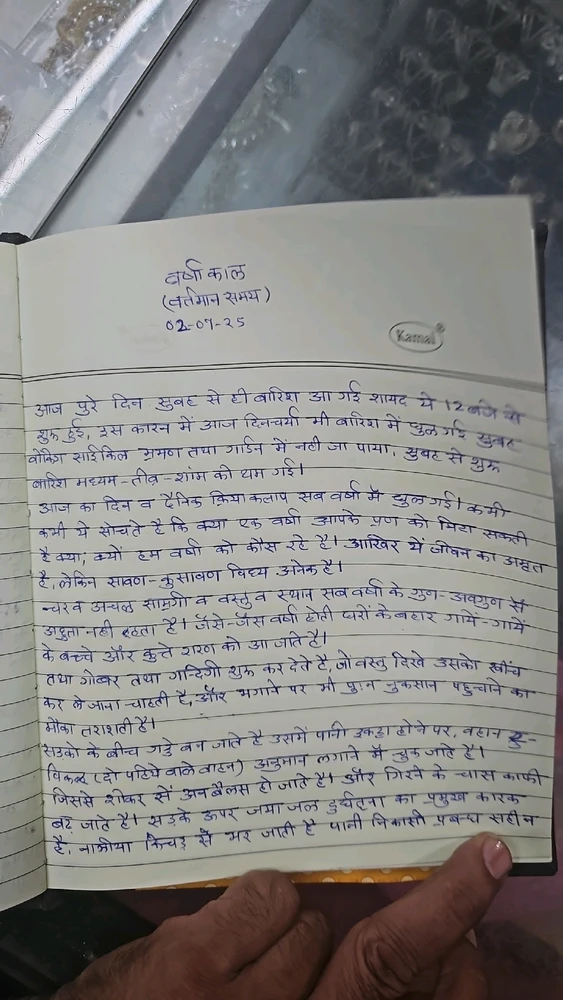 वर्षा काल
(वर्तमान समय)
02-07-25
Kamal
आज पुरे दिन सुबह से ही बारिश आ गई शायद ये 12 बजे से
शुरू हुई, इस कारन में आज दिनचर्या भी बारिश में धुल गई सुबह
वोकिंग साईकिल भ्रमण तथा गार्डन में नही जा पाया, सुबह से शुरू
बारिश मध्यम-तीव्र-शांम को थम गई।
आज का दिन व दैनिक क्रिया कलाप सब वर्षा में धुल गई। कभी
कभी ये सोचते है कि क्या एक वर्षा आपके प्रण को मिटा सकती
है क्या, क्यों हम वर्षा को कौस रहे है। आखिर ये जीवन का अमृत
है, लेकिन सावण-कुसावण विध्य अनेक है।
चर व अचल सामग्री व वस्तु व स्थान सब वर्षा के गुण-अवगुण से
अछुता नही रहता है। जैसे-जैस वर्षा होती घरों के बहार गायें-गायें
के बच्चे और कुत्ते शरण को आ जाते है।
तथा गोब्बर तथा गन्दिगी शुरू कर देते है, जो वस्तु दिखे उसको खींच
कर ले जाना चाहती है, और भगाने पर भी पुनः नुकसान पहुचाने का
मौका तराशती है।
सड़को के बीच गड्डे बन जाते है उसमें पानी इकट्ठा होने पर, वहान
(दो पहिये वाले वाहन) अनुमान लगाने में चुक जाते है।
जिससे शोकर से अनबैलस हो जाते है। और गिरने के चास काफी
बढ़ जाते है। सड़के ऊपर जमा जल दुर्घटना का प्रमुख कारक
है, नालीया किचड़ से भर जाती है पानी निकासी प्रबन्ध सही न